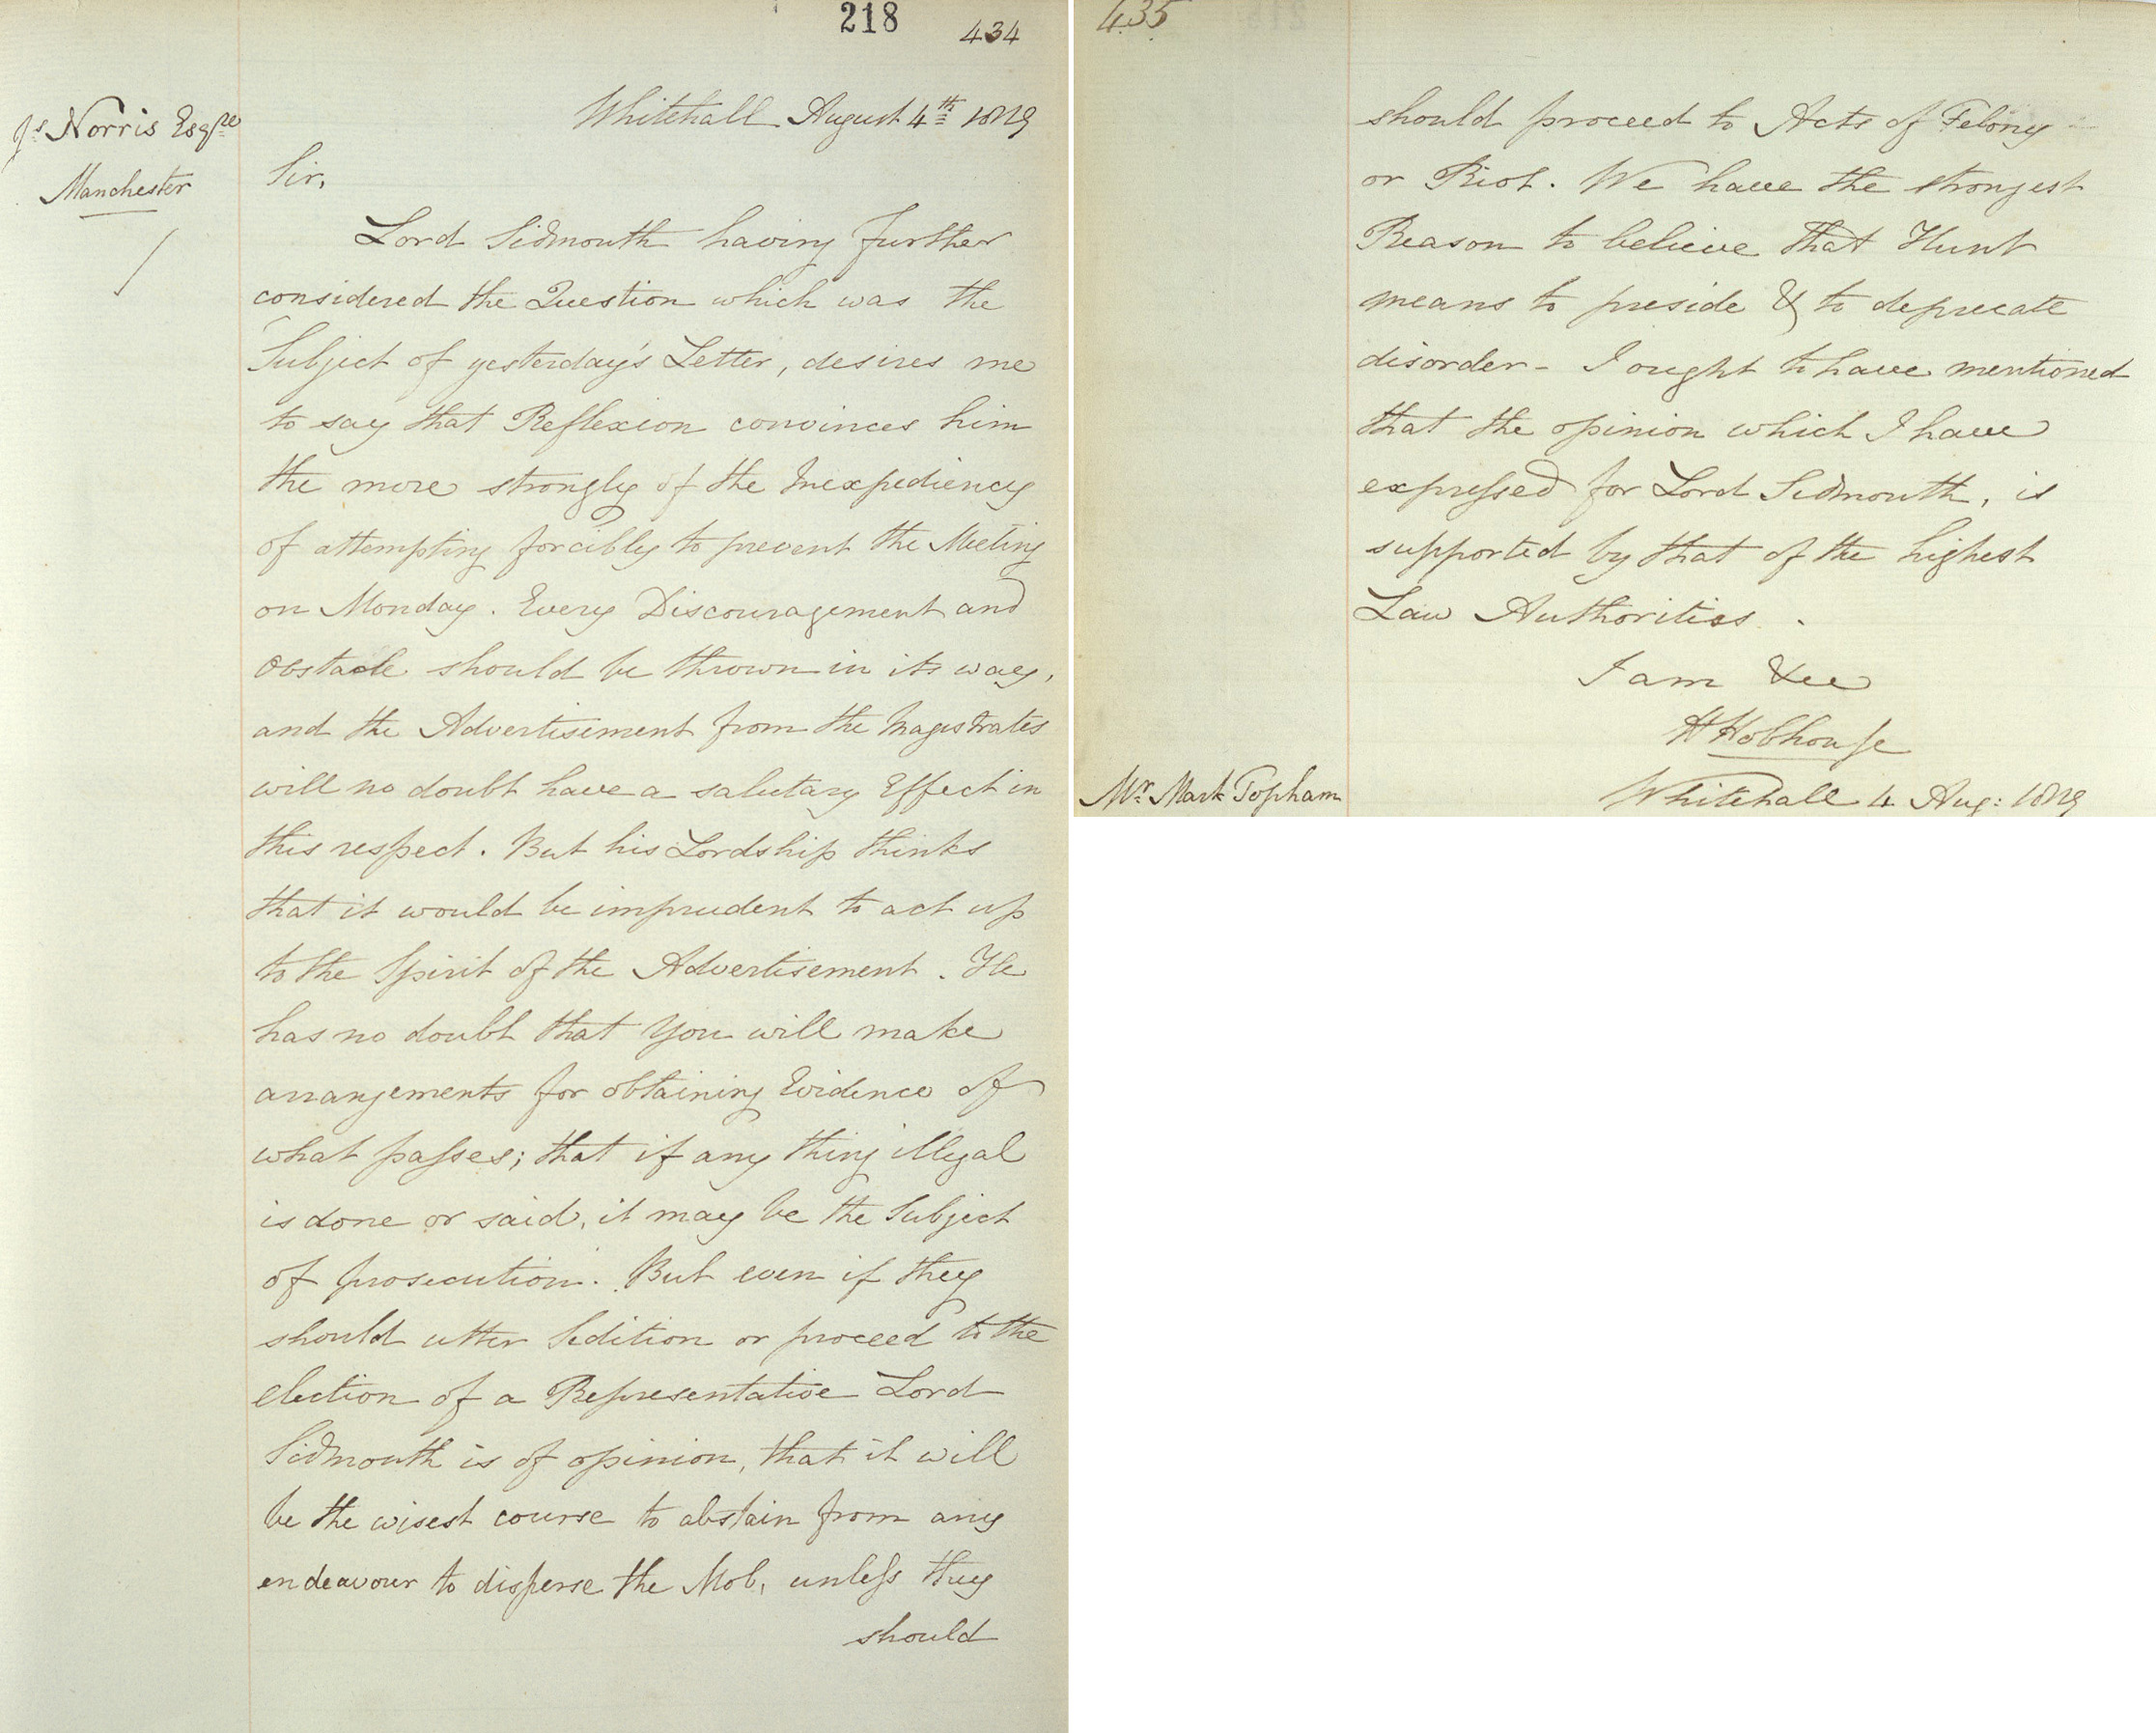 218 434
Whitehall August 4th 1819
Js Norris Esqre
Manchester
Sir,
Lord Sidmouth having further
considered the Question which was the
Subject of yesterday's Letter, desires me
to say that Reflexion convinces him
the more strongly of the Inexpediency
of attempting forcibly to prevent the Meeting
on Monday. Every Discouragement and
obstacle should be thrown in its way,
and the Advertisement from the Magistrates
will no doubt have a salutary Effect in
this respect. But his Lordship thinks
that it would be imprudent to act up
to the Spirit of the Advertisement. He
has no doubt that You will make
arrangements for obtaining Evidence of
what passes; that if any thing illegal
is done or said, it may be the Subject
of prosecution. But even if they
should utter Sedition or proceed to the
election of a Representative Lord
Sidmouth is of opinion, that it will
be the wisest course to abstain from any
endeavour to disperse the Mob, unless they
should
435
should proceed to Acts of Felony
or Riot. We have the strongest
Reason to believe that Hunt
means to preside & to deprecate
disorder - I ought to have mentioned
that the opinion which I have
expressed for Lord Sidmouth, is
supported by that of the highest
Law Authorities.
I am &ce
H Hobhouse
Mr Mark Topham
Whitehall 4 Aug: 1819